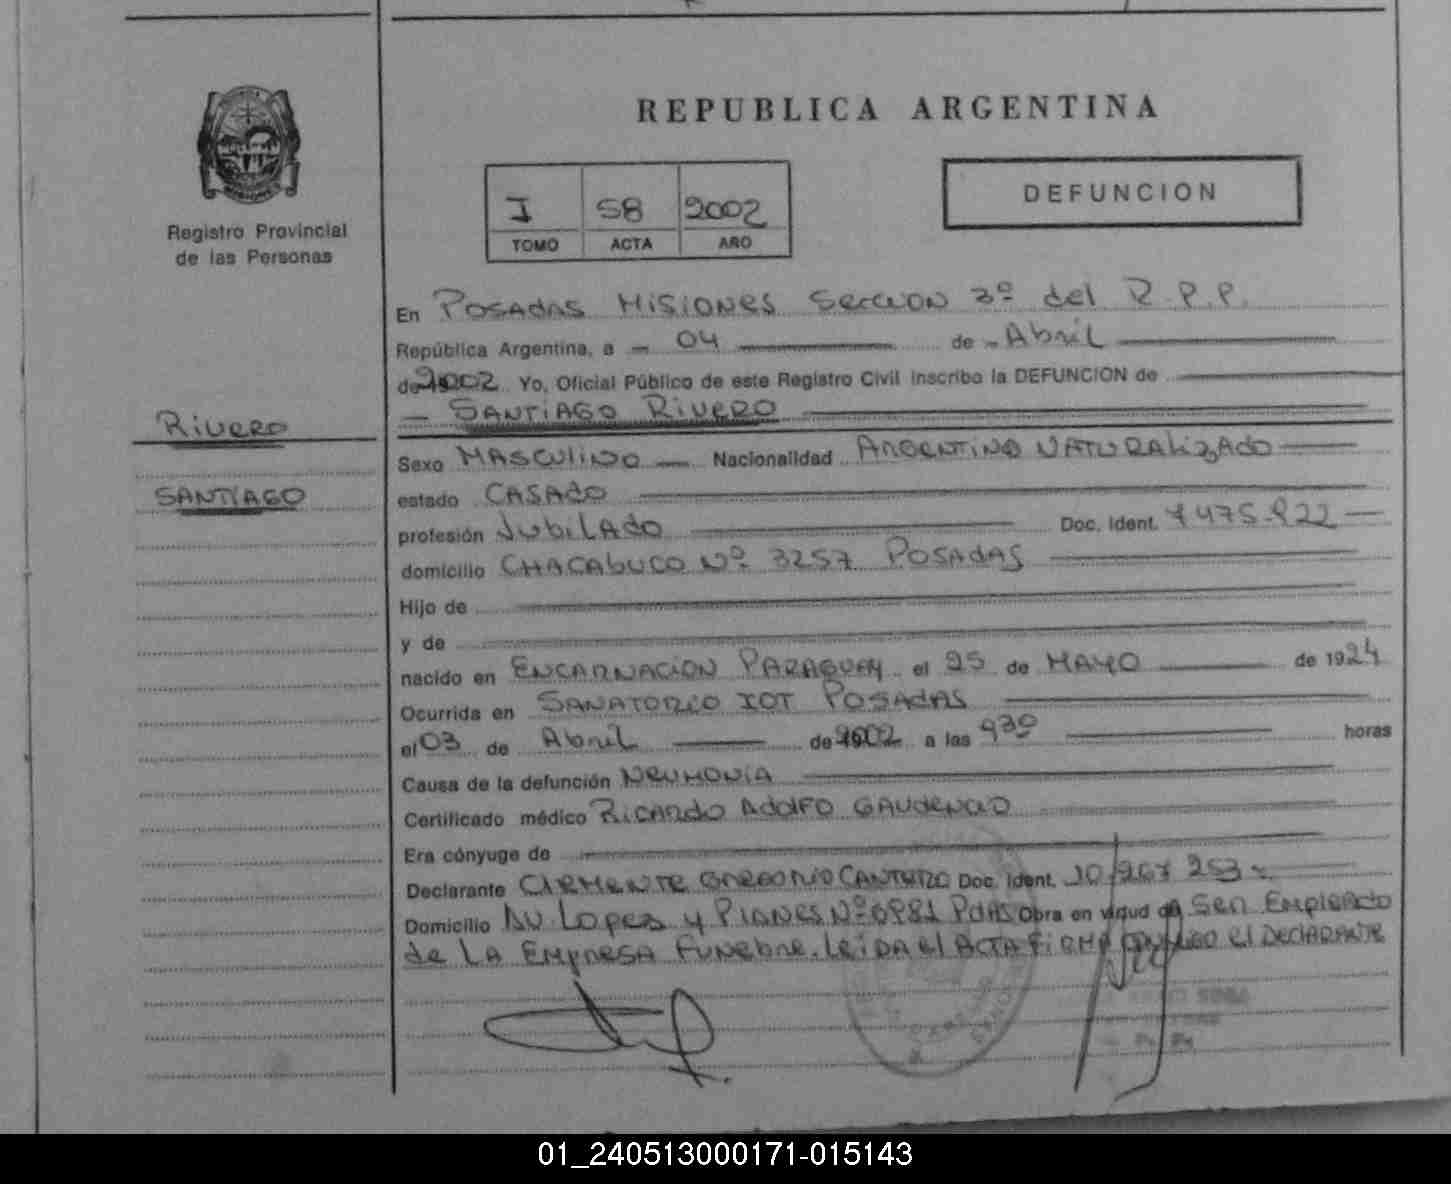 REPUBLICA ARGENTINA
DEFUNCION
I 58 2002
TOMO ACTA AÑO
Registro Provincial
de las Personas
En POSADAS MISIONES SECCION 3º del R.P.P.
República Argentina, a 04 de Abril
de 2002 Yo, Oficial Público de este Registro Civil inscribo la DEFUNCION de
SANTIAGO RIVERO
RIVERO
SANTIAGO
Sexo MASCULINO Nacionalidad ARGENTINO NATURALIZADO
estado CASADO
profesión JUBILADO Doc. Ident.
domicilio CHACABUCO Nº 3257 POSADAS
Hijo de
y de
nacido en ENCARNACION PARAGUAY el 25 de MAYO de 1924
Ocurrida en SANATORIO IOT POSADAS
el 03 de Abril de 2002 a las horas
Causa de la defunción NEUMONIA
Certificado médico RICARDO ADOLFO GAUDENCIO
Era cónyuge de
Declarante CLEMENTE GREGORIO CANTERO Doc. Ident. 10 267 253
Domicilio AV. LOPEZ y PLANES Nº Pdas Obra en virtud de Ser Empleado
de LA EMPRESA FUNEBRE. LEIDA el ACTA FIRMA CONMIGO el DECLARANTE
01_240513000171-015143